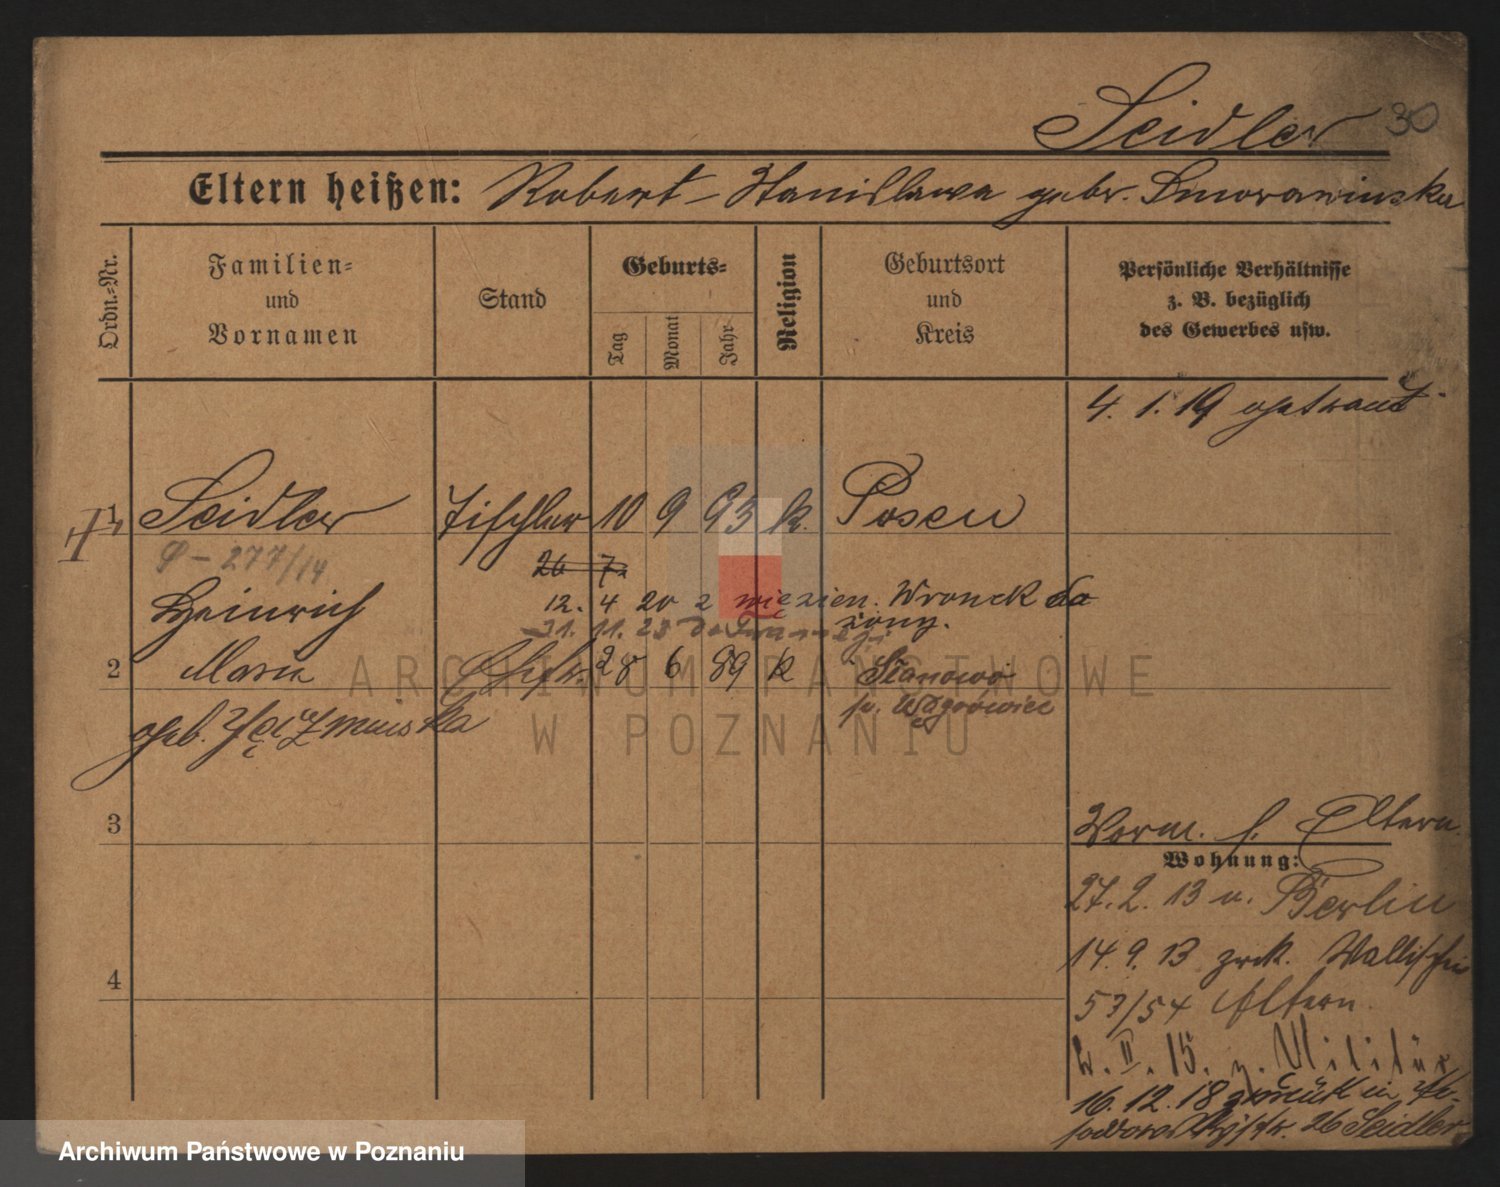 Seidler 30
Eltern heißen: Robert - Stanislawa gebr. Smorawinska
Ordn.-Nr.
Familien- und Vornamen
Stand
Geburts-
Tag Monat Jahr
Religion
Geburtsort und Kreis
Persönliche Verhältnisse z. B. bezüglich des Gewerbes usw.
4. 1. 19 getraut
1 Seidler Tischler 10 9 93 k. Posen
- 277/14
26 7.
Heinrich
12. 4 20 z więzien. Wronek do
żony.
31. 11. 25
2 Maria Ehefr. 28 6 89 k Stanowo
geb.
p. Wągrowiec
3
Vorm. s. Eltern
Wohnung:
27. 2. 13 n. Berlin
14. 9. 13 zrck. Wallischei
53/54 Eltern
4
II. 15. z. Militär
16. 12. 18 zurück in
26 Seidler
ARCHIWUM PAŃSTWOWE
W POZNANIU
Archiwum Państwowe w Poznaniu